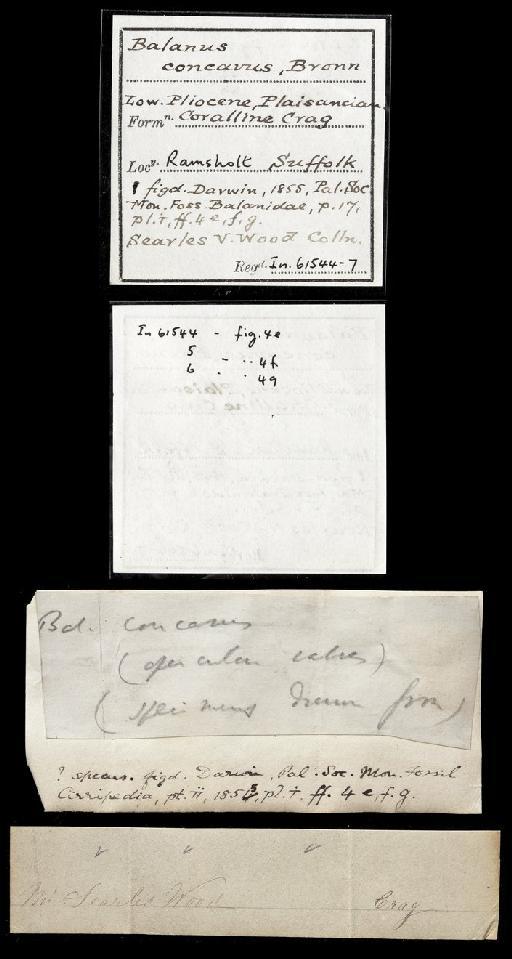 Balanus
concavus, Bronn
Low. Pliocene, Plaisancian
Formn. Coralline Crag
Locy. Ramsholt, Suffolk
figd. Darwin, 1855, Pal. Soc
Mon. Foss. Balanidae, p. 17,
pl. 1, ff. 4e, f, g.
Searles V. Wood Colln.
Regd. In. 61544-7
In 61544 - fig. 4e
5 - .. 4f
6 . . 4g
Bal. concavus
(opercular valves)
(specimens drawn from)
? specms. figd. Darwin, Pal. Soc. Mon. Fossil
Cirripedia, pt. ii, 1855, pl. 1, ff. 4e, f, g.
Mr Searles Wood Crag